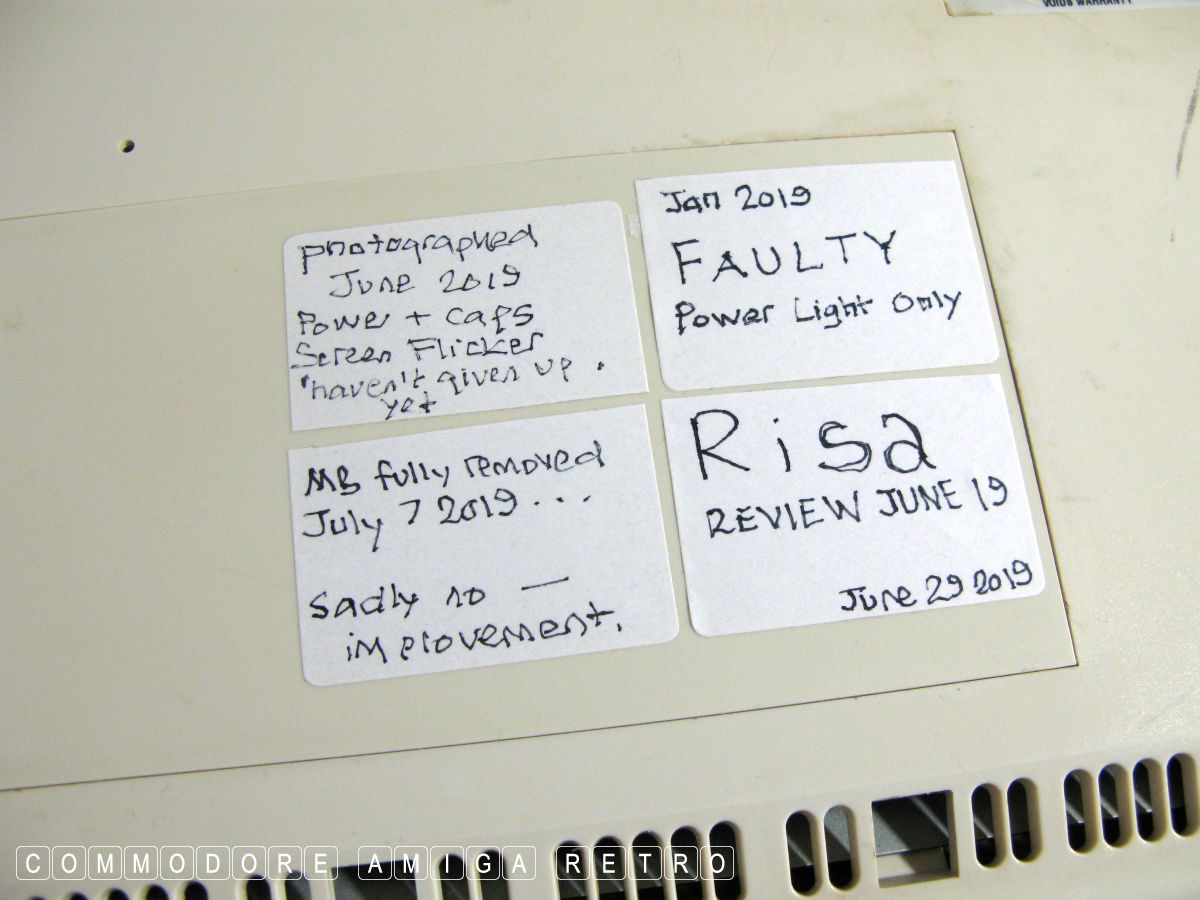 VOIDS WARRANTY
photographed
June 2019
Power + caps
Screen Flicker
'haven't given up.
yet
Jan 2019
FAULTY
Power Light Only
MB fully removed
July 7 2019...
Sadly no —
improvement.
Risa
REVIEW JUNE 19
June 29 2019
COMMODORE AMIGA RETRO